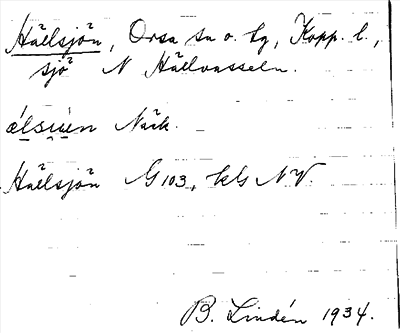 Hällsjön, Orsa sn o. tg, Kopp. l.,
sjö N Hällvasseln.
Näck.
Hällsjön G 103, kG NV.
B. Lindén 1934.